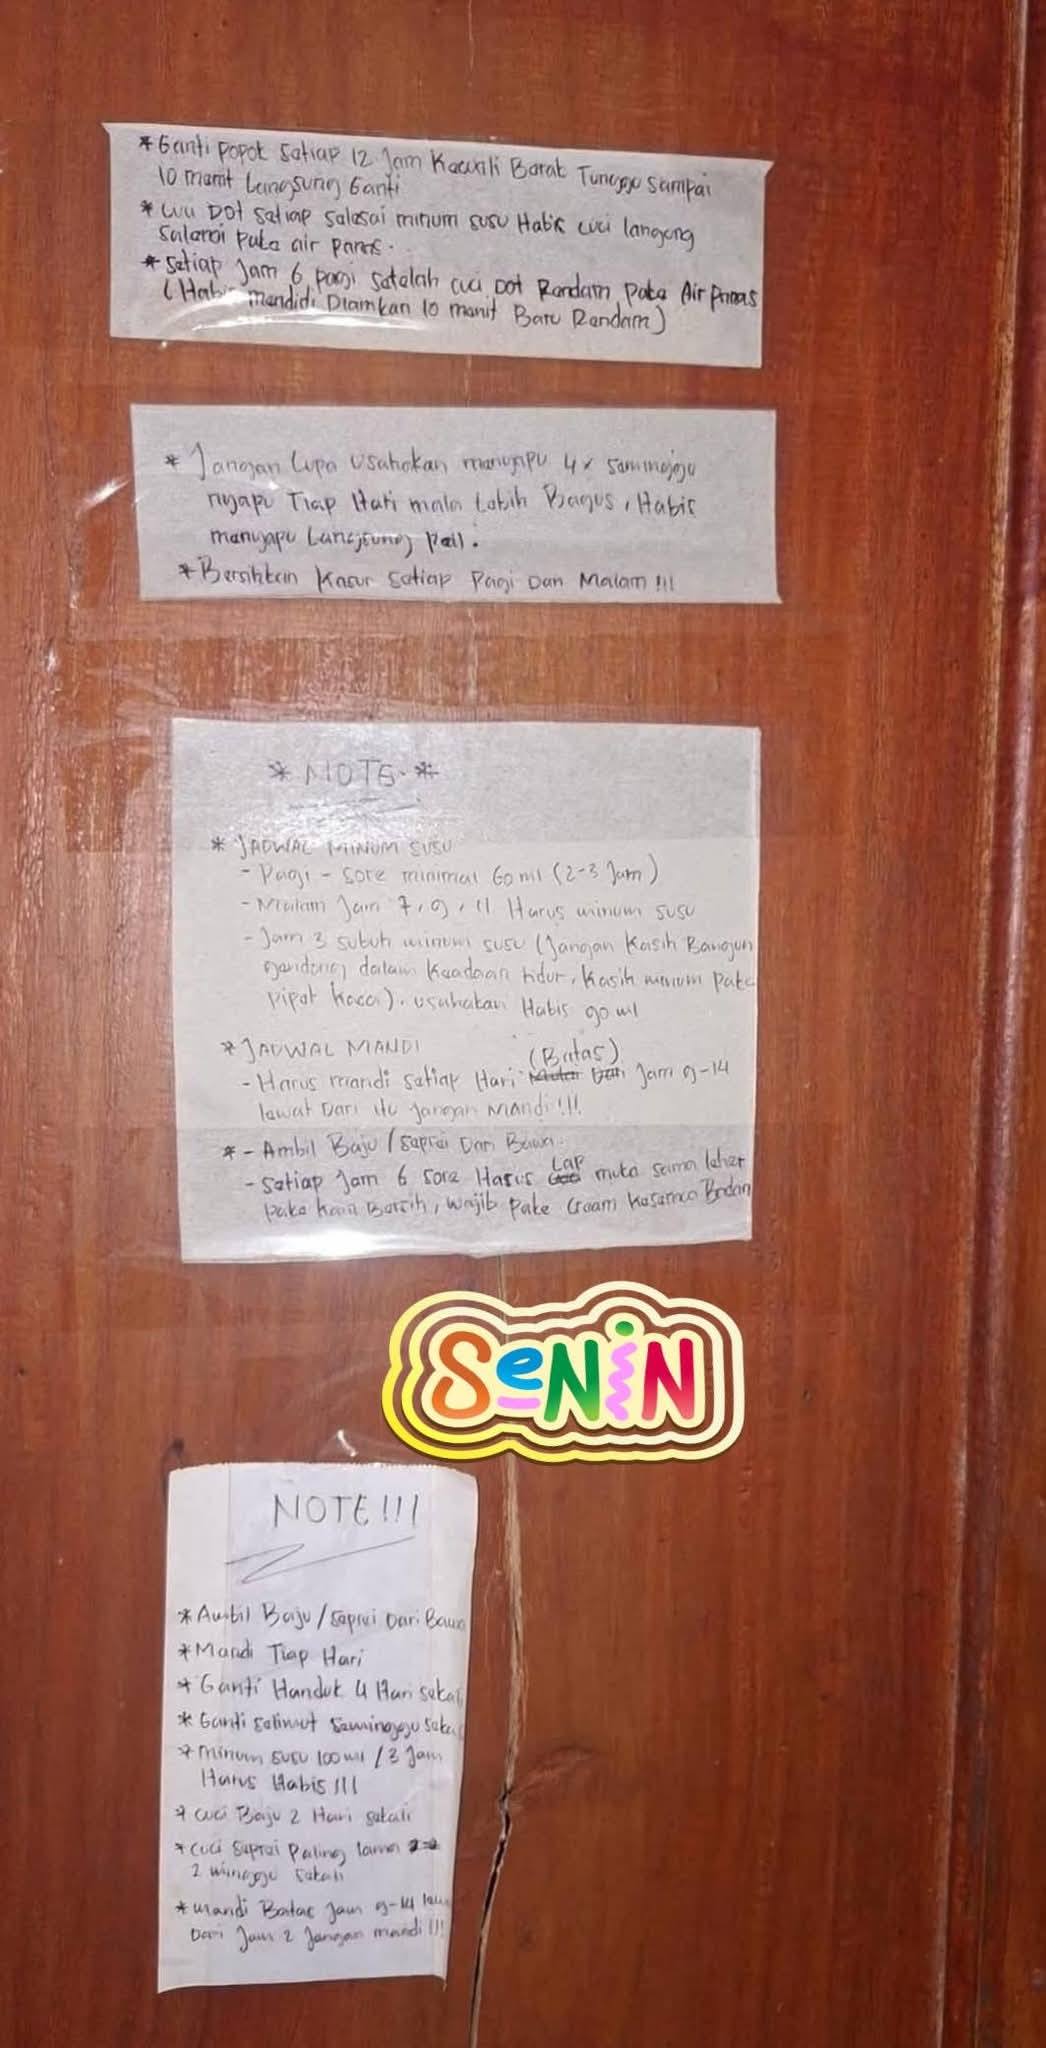 *Ganti Popok Setiap 12 Jam Kecuali Berak Tunggu sampai
10 menit Langsung Ganti
* cuci Dot setiap selesai minum susu Habis cuci langsung
pake air panas.
* Setiap Jam 6 pagi setelah cuci Dot Rendam pake Air panas
(Habis mendidi Diamkan 10 menit Baru Rendam)
* Jangan Lupa Usahakan menyapu 4x seminggu
nyapu Tiap Hari mala Lebih Bagus, Habis
menyapu Langsung pell.
*Bersihkan Kasur Setiap Pagi Dan Malam!!!
* NOTE *
* JADWAL MINUM SUSU
- Pagi - Sore minimal 60 ml (2-3 Jam)
- Malam Jam 7, 9, 11 Harus minum susu
- Jam 3 subuh minum susu (Jangan Kasih Bangun
gendong dalam Keadaan tidur, Kasih minum pake
pipet kaca). usahakan Habis 90 ml
* JADWAL MANDI
(Batas)
- Harus mandi setiap Hari Jam 9-14
lewat Dari itu Jangan Mandi!!!
* - Ambil Baju/seprei Dari Bawa.
- Setiap Jam 6 sore Harus Lap muka sama leher
pake Kain Bersih, wajib pake Cream Kesemua Badan
SeNiN
NOTE!!!
*Ambil Baju/seprei Dari Bawa
*Mandi Tiap Hari
*Ganti Handuk 4 Hari sekali
*Ganti selimut seminggu seka
*minum susu 100 ml / 3 Jam
Harus Habis!!!
* cuci Baju 2 Hari sekali
*cuci seprei paling lama
2 minggu sekali
*mandi Batas Jam 9-14
Dari Jam 2 Jangan mandi!!!